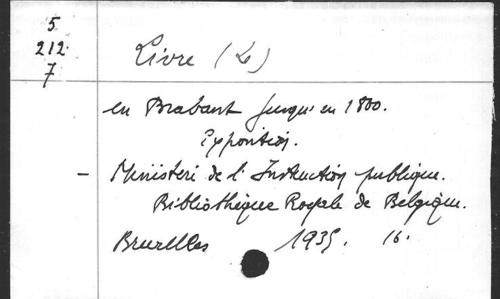 5
212
7
Livre (Le)
en Brabant jusqu'en 1800.
Exposition.
– Ministère de l'Instruction publique.
Bibliothèque Royale de Belgique.
Bruxelles 1935. 16.